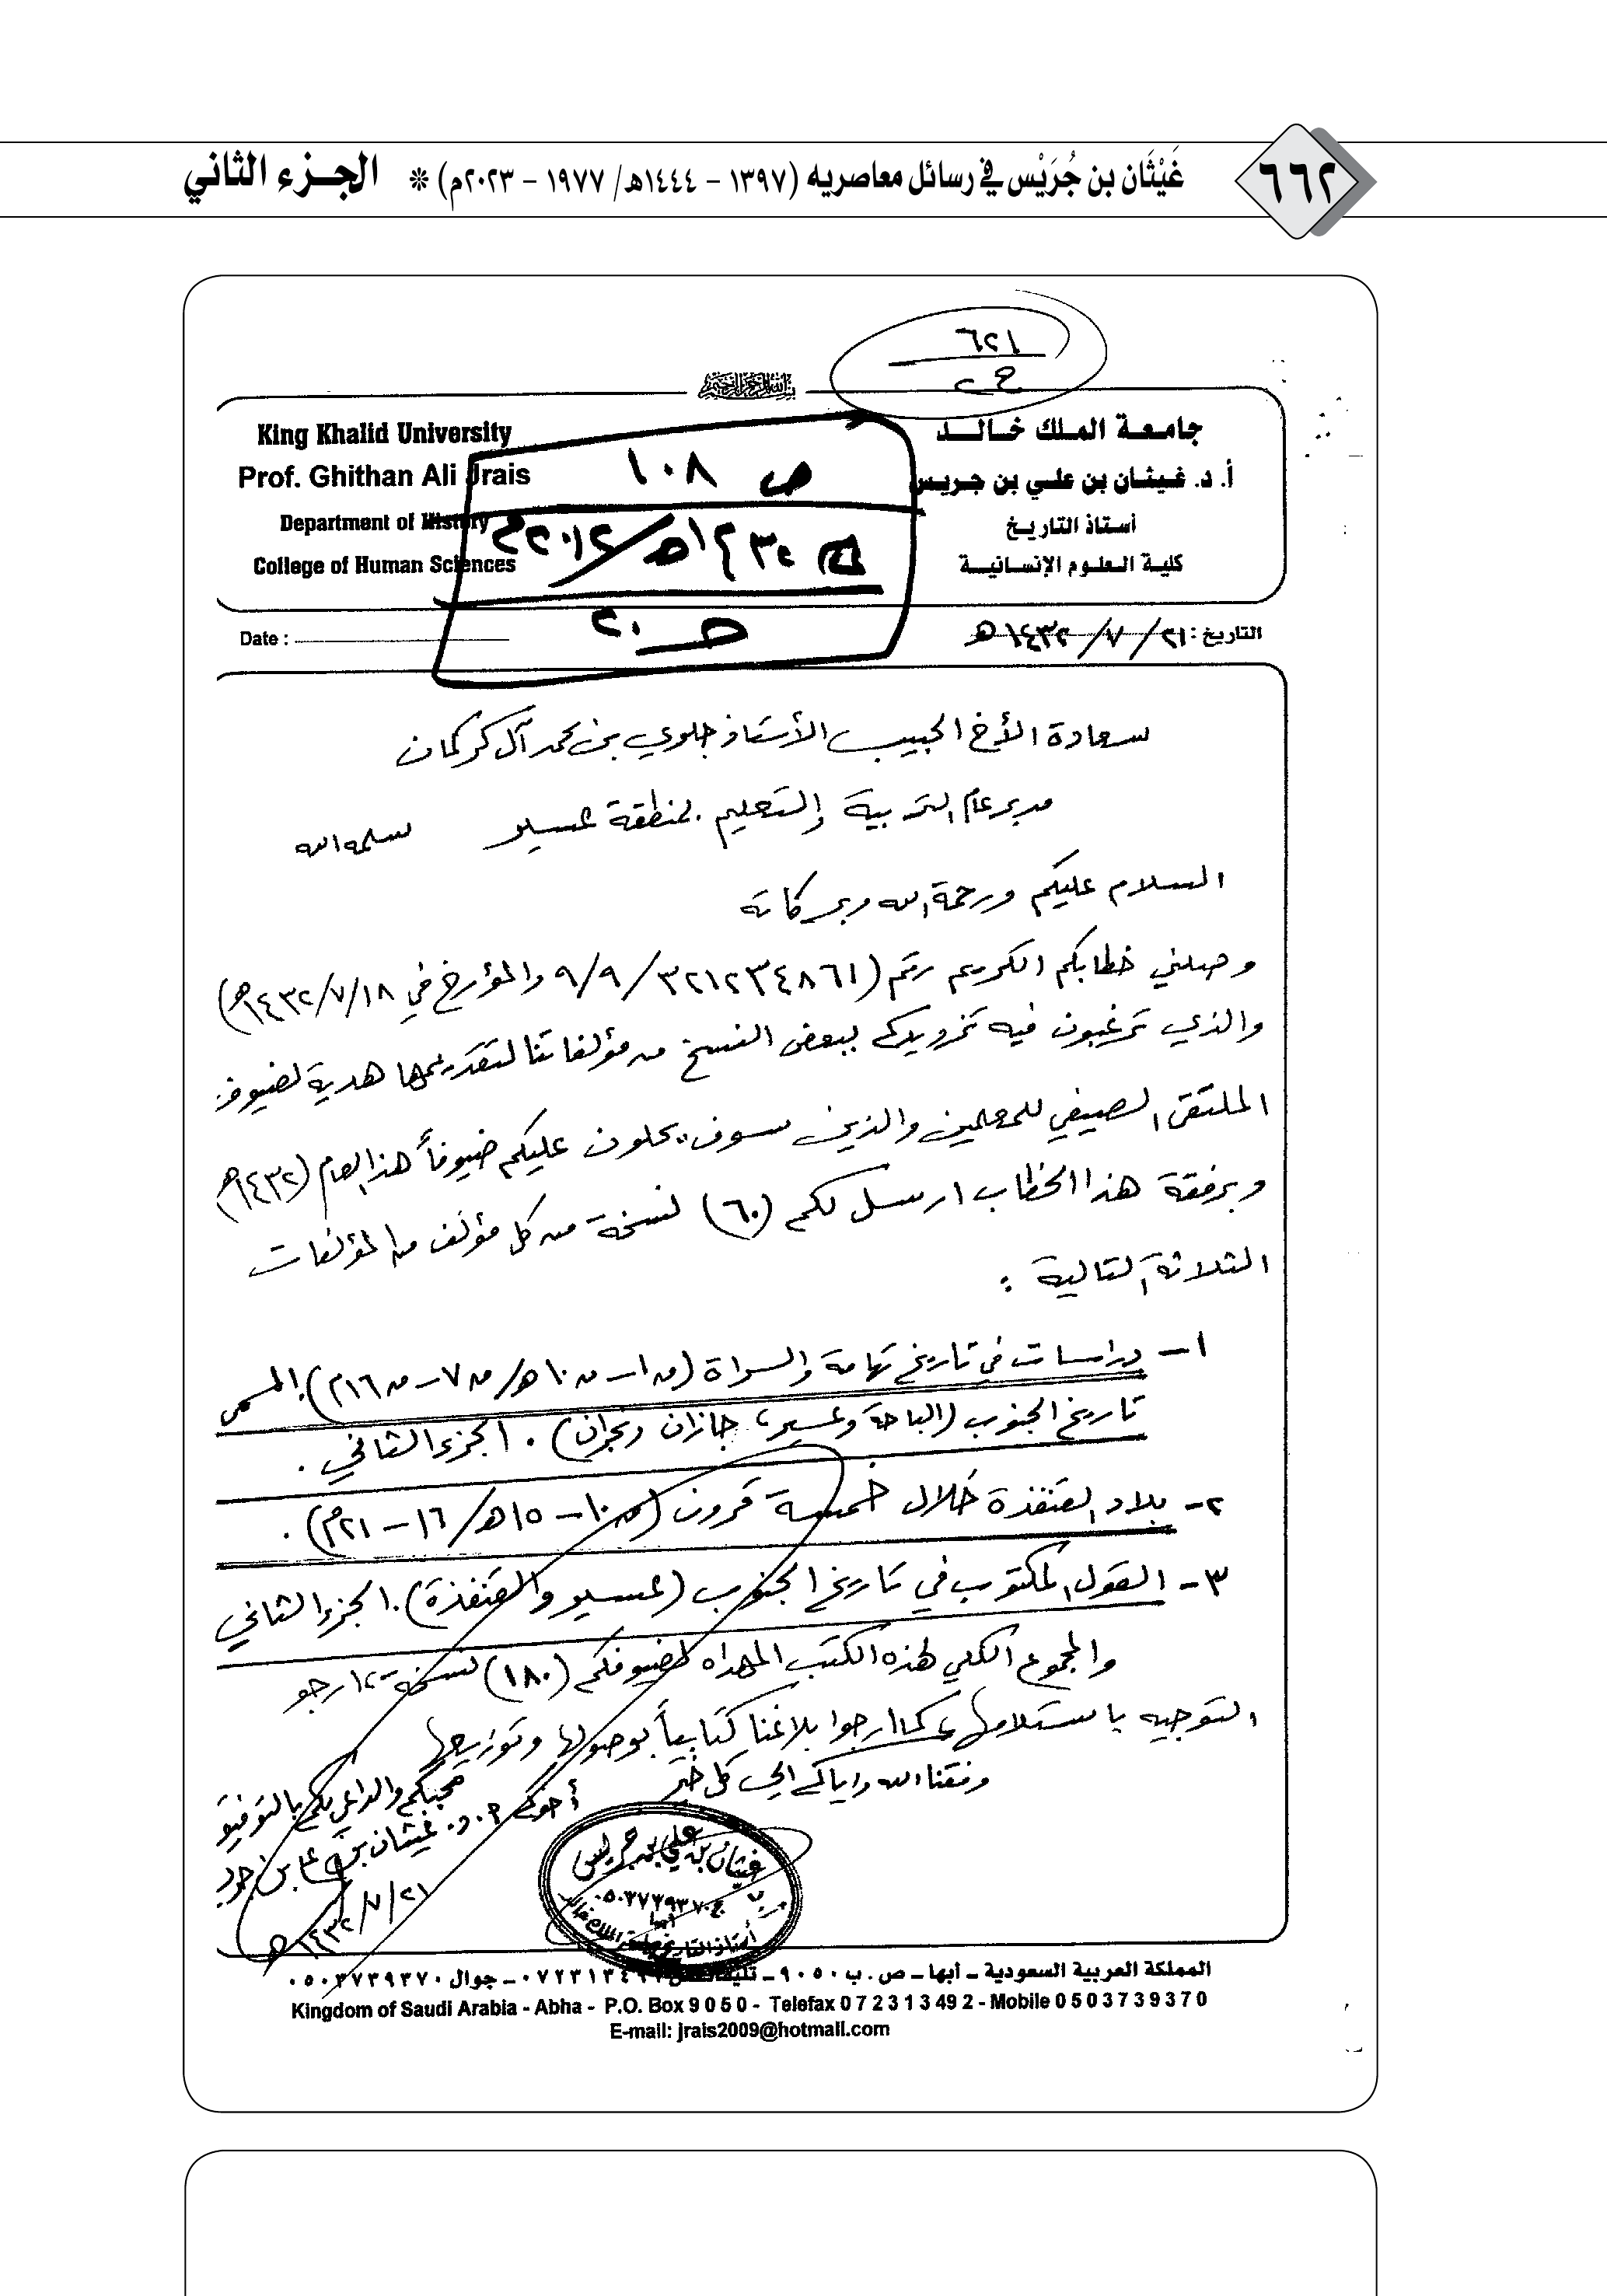 ٦٦٢
غَيْثَان بن جُرَيْس في رسائل معاصريه (١٣٩٧ - ١٤٤٤هـ/ ١٩٧٧ - ٢٠٢٣م) * الجزء الثاني
٦٢١
ج٢
جامعة الملك خالد
أ. د. غيثان بن علي بن جريس
أستاذ التاريخ
كلية العلوم الإنسانية
King Khalid University
Prof. Ghithan Ali Jrais
Department of History
College of Human Sciences
ص ١٠٨
١٤٣٤هـ/٢٠١٢م
حـ ٢٠
التاريخ: ٢١/ ٧/ ١٤٣٢هـ
Date :
سعادة الأخ الحبيب الأستاذ جلوي بن محمد آل كركمان
مدير عام التربية والتعليم بمنطقة عسير سلمه الله
السلام عليكم ورحمة الله وبركاته
وصلني خطابكم الكريم رقم (٣٢١٢٣٤٨٦١/ ٩/٩ والمؤرخ في ١٤٣٢/٧/١٨هـ)
والذي ترغبون فيه تزويدكم ببعض النسخ من مؤلفاتنا لتقديمها هدية لضيوف
الملتقى الصيفي للمعلمين والذين سوف يحلون عليكم ضيوفاً هذا العام (١٤٣٢هـ)
وبرفقة هذا الخطاب ارسل لكم (٦٠) نسخة من كل مؤلف من المؤلفات
الثلاثة التالية :
١- دراسات في تاريخ تهامة والسراة (ق١- ق١٠هـ/ ق٧- ق١٦م). المسمى
تاريخ الجنوب (الباحة وعسير، جازان ونجران). الجزء الثاني .
٢- بلاد القنفذة خلال خمسة قرون (ق١٠- ١٥هـ/ ١٦- ٢١م) .
٣- القول المكتوب في تاريخ الجنوب (عسير والقنفذة). الجزء الثاني
والمجموع الكلي لهذه الكتب المهداه لضيوفكم (١٨٠) نسخة، ارجو
التوجيه باستلامها، كما ارجوا بلاغنا كتابياً بوصولها وتوزيعها
وفقنا الله واياكم إلى كل خير
محبكم والداعي لكم بالتوفيق
أخوكم أ. د. غيثان بن علي بن جريس
٢١/ ٧/ ١٤٣٢هـ
غيثان بن علي بن جريس
ج. ٠٥٠٣٧٣٩٣٧٠
أبها
أستاذ التاريخ بجامعة الملك خالد
المملكة العربية السعودية – أبها – ص . ب ٩٠٥٠ – تليفاكس ٠٧٢٣١٣٤٩٢ – جوال ٠٥٠٣٧٣٩٣٧٠
Kingdom of Saudi Arabia - Abha - P.O. Box 9 0 5 0 - Telefax 0 7 2 3 1 3 49 2 - Mobile 0 5 0 3 7 3 9 3 7 0
E-mail: jrais2009@hotmail.com